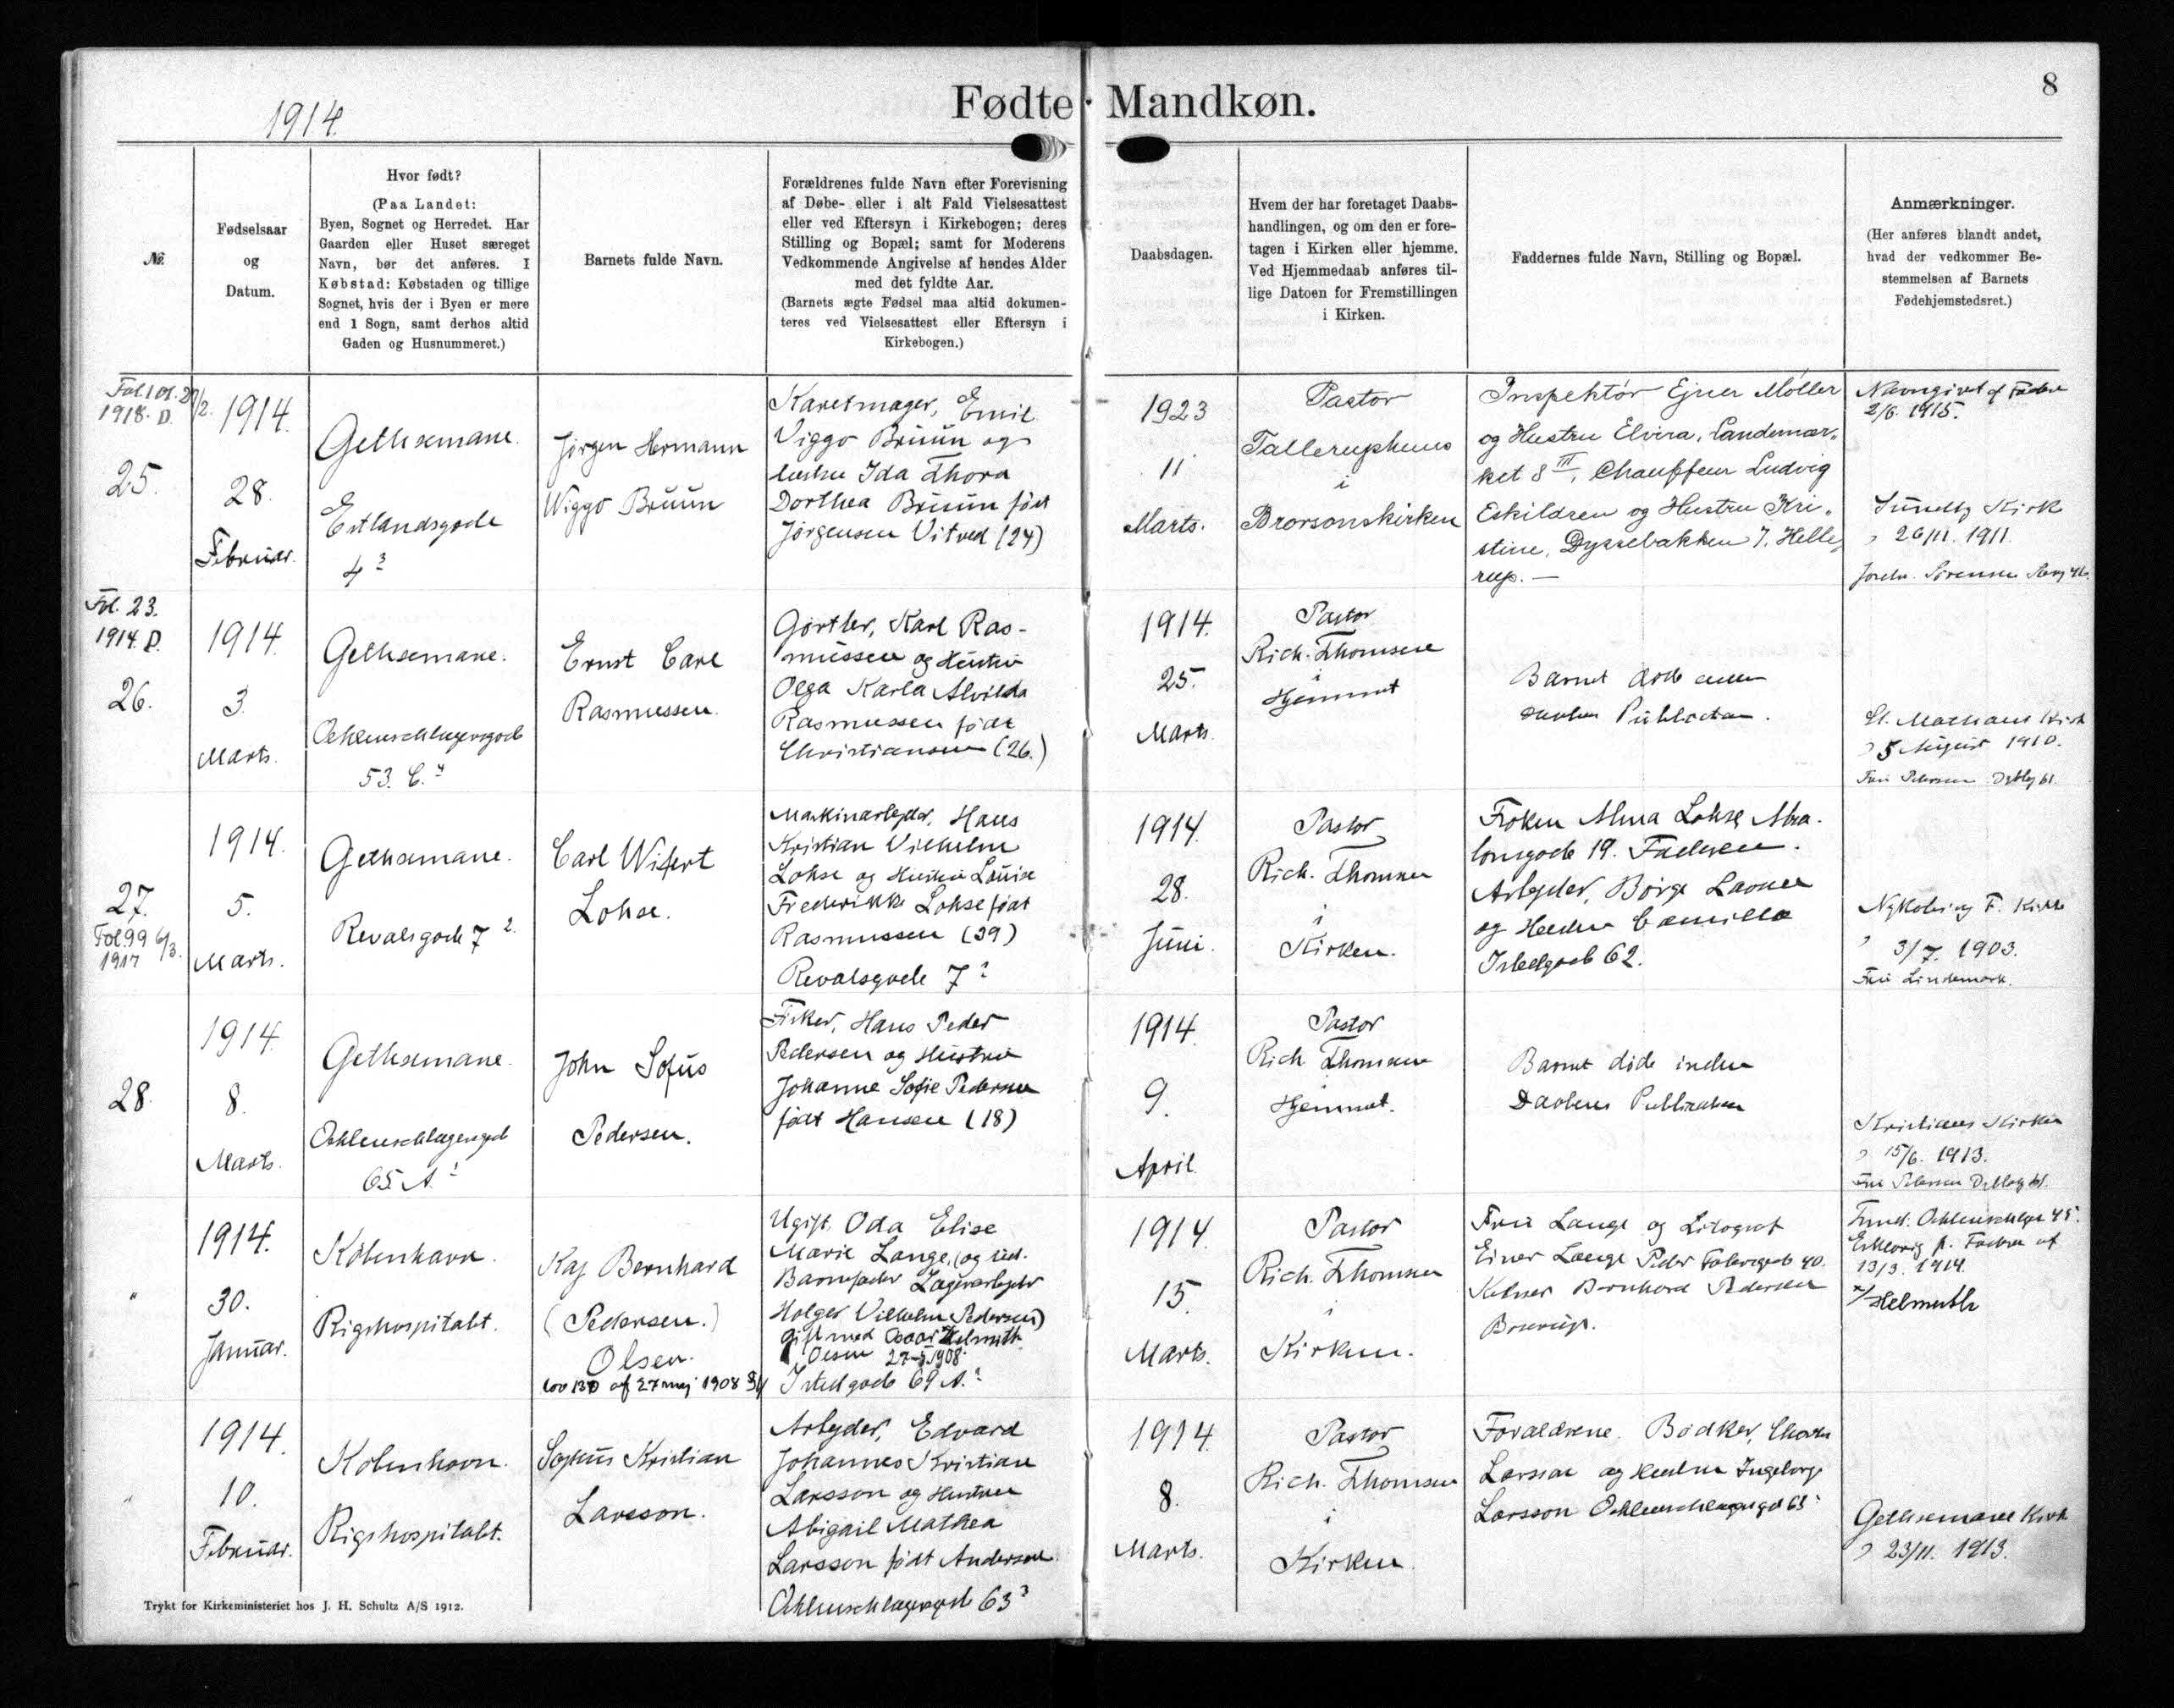 1914.
Fødte · Mandkøn.
8
№
Fødselsaar
og
Datum.
Hvor født?
(Paa Landet:
Byen, Sognet og Herredet. Har
Gaarden eller Huset særeget
Navn, bør det anføres. I
Købstad: Købstaden og tillige
Sognet, hvis der i Byen er mere
end 1 Sogn, samt derhos altid
Gaden og Husnummeret.)
Barnets fulde Navn.
Forældrenes fulde Navn efter Forevisning
af Døbe- eller i alt Fald Vielsesattest
eller ved Eftersyn i Kirkebogen; deres
Stilling og Bopæl; samt for Moderens
Vedkommende Angivelse af hendes Alder
med det fyldte Aar.
(Barnets ægte Fødsel maa altid dokumen-
teres ved Vielsesattest eller Eftersyn i
Kirkebogen.)
Daabsdagen.
Hvem der har foretaget Daabs-
handlingen, og om den er fore-
tagen i Kirken eller hjemme.
Ved Hjemmedaab anføres til-
lige Datoen for Fremstillingen
i Kirken.
Faddernes fulde Navn, Stilling og Bopæl.
Anmærkninger.
(Her anføres blandt andet,
hvad der vedkommer Be-
stemmelsen af Barnets
Fødehjemstedsret.)
1918. D.
25.
1914.
28.
Februar.
Gethsemane.
Estlandsgade
4 3
Jørgen Hermann
Wiggo Bruun
Karetmager, Emil
Viggo Bruun og
Hustru Ida Thora
Dorthea Bruun født
Jørgensen Vitved (24)
1923
11
Marts.
Pastor
Talleruphuus
i
Brorsonskirken
Inspektør Ejner Møller
og Hustru Elvira, Landemær-
ket 8 III, Chauffeur Ludvig
Eskildsen og Hustru Kri-
stine, Dyssebakken 7, Helle-
rup. —
Navngivet af Fader
2/6. 1915.
Sundby Kirk
26/11. 1911.
Fol. 23.
1914. D.
26.
1914.
3.
Marts.
Gethsemane.
Oehlenschlægersgade
53. C. 4
Ernst Carl
Rasmussen.
Gørtler, Karl Ras-
mussen og Hustru
Olga Karla Alvilda
Rasmussen født
Christiansen (26.)
1914.
25.
Marts.
Pastor
Rich. Thomsen
i
Hjemmet
Barnet døde inden
Daabens Publication.
St. Mathæus Kirk
5 August 1910.
27.
Fol. 99 6/3.
1917
1914.
5.
Marts.
Gethsemane.
Revalsgade 7 2.
Carl Wifert
Lohse.
Maskinarbejder, Hans
Kristian Vilhelm
Lohse og Hustru Louise
Frederikke Lohse født
Rasmussen (39)
Revalsgade 7 2
1914.
28.
Juni.
Pastor
Rich. Thomsen
i
Kirken.
Frøken Alma Lohse, Absa-
lonsgade 19. Faderen.
Arbejder, Børge
og Hustru Camilla
Istedgade 62.
Nykøbing F. Kirke
3/7. 1903.
Fru Lindemark.
28
1914.
8.
Marts.
Gethsemane.
Oehlenschlægersgade
65 A. 2
John Sofus
Pedersen.
Fisker, Hans Peder
Pedersen og Hustru
Johanne Sofie Pedersen
født Hansen (18)
1914.
9.
April
Pastor
Rich Thomsen
i
Hjemmet.
Barnet døde inden
Daabens Publication
Kristians Kirken
15/6. 1913.
"
1914.
30.
Januar.
København.
Rigshospitalet.
Kaj Bernhard
(Pedersen.)
Olsen.
Lov 130 af 27 maj 1908 §4
Ugift Oda Elise
Marie Lange, (og udl.
Barnefader Lagerarbejder
Holger Vilhelm Pedersen)
gift med Oscar Helmuth
Olsen 27-5-1908.
Istedgade 69 A. 2
1914.
15.
Marts.
Pastor
Rich. Thomsen
i
Kirken.
Fru Lange og Litograf
Einer Lange Peder Fabersgade 40.
Kelner Bernhard Pedersen
13/3. 1914.
Helmuth
"
1914.
10.
Februar.
København.
Rigshospitalet.
Sophus Kristian
Larsson.
Arbejder, Edvard
Johannes Kristian
Larsson og Hustru
Abigail Mathea
Larsson født Anderson.
Oehlenschlægersgade 63 3
1914.
8.
Marts.
Pastor
Rich. Thomsen
i
Kirken.
Forældrene. Bødker,
Larsson og Hustru Ingeborg
Larsson Oehlenschlægersgd 65
Gethsemane Kirk
23/11. 1913.
Trykt for Kirkeministeriet hos J. H. Schultz A/S 1912.